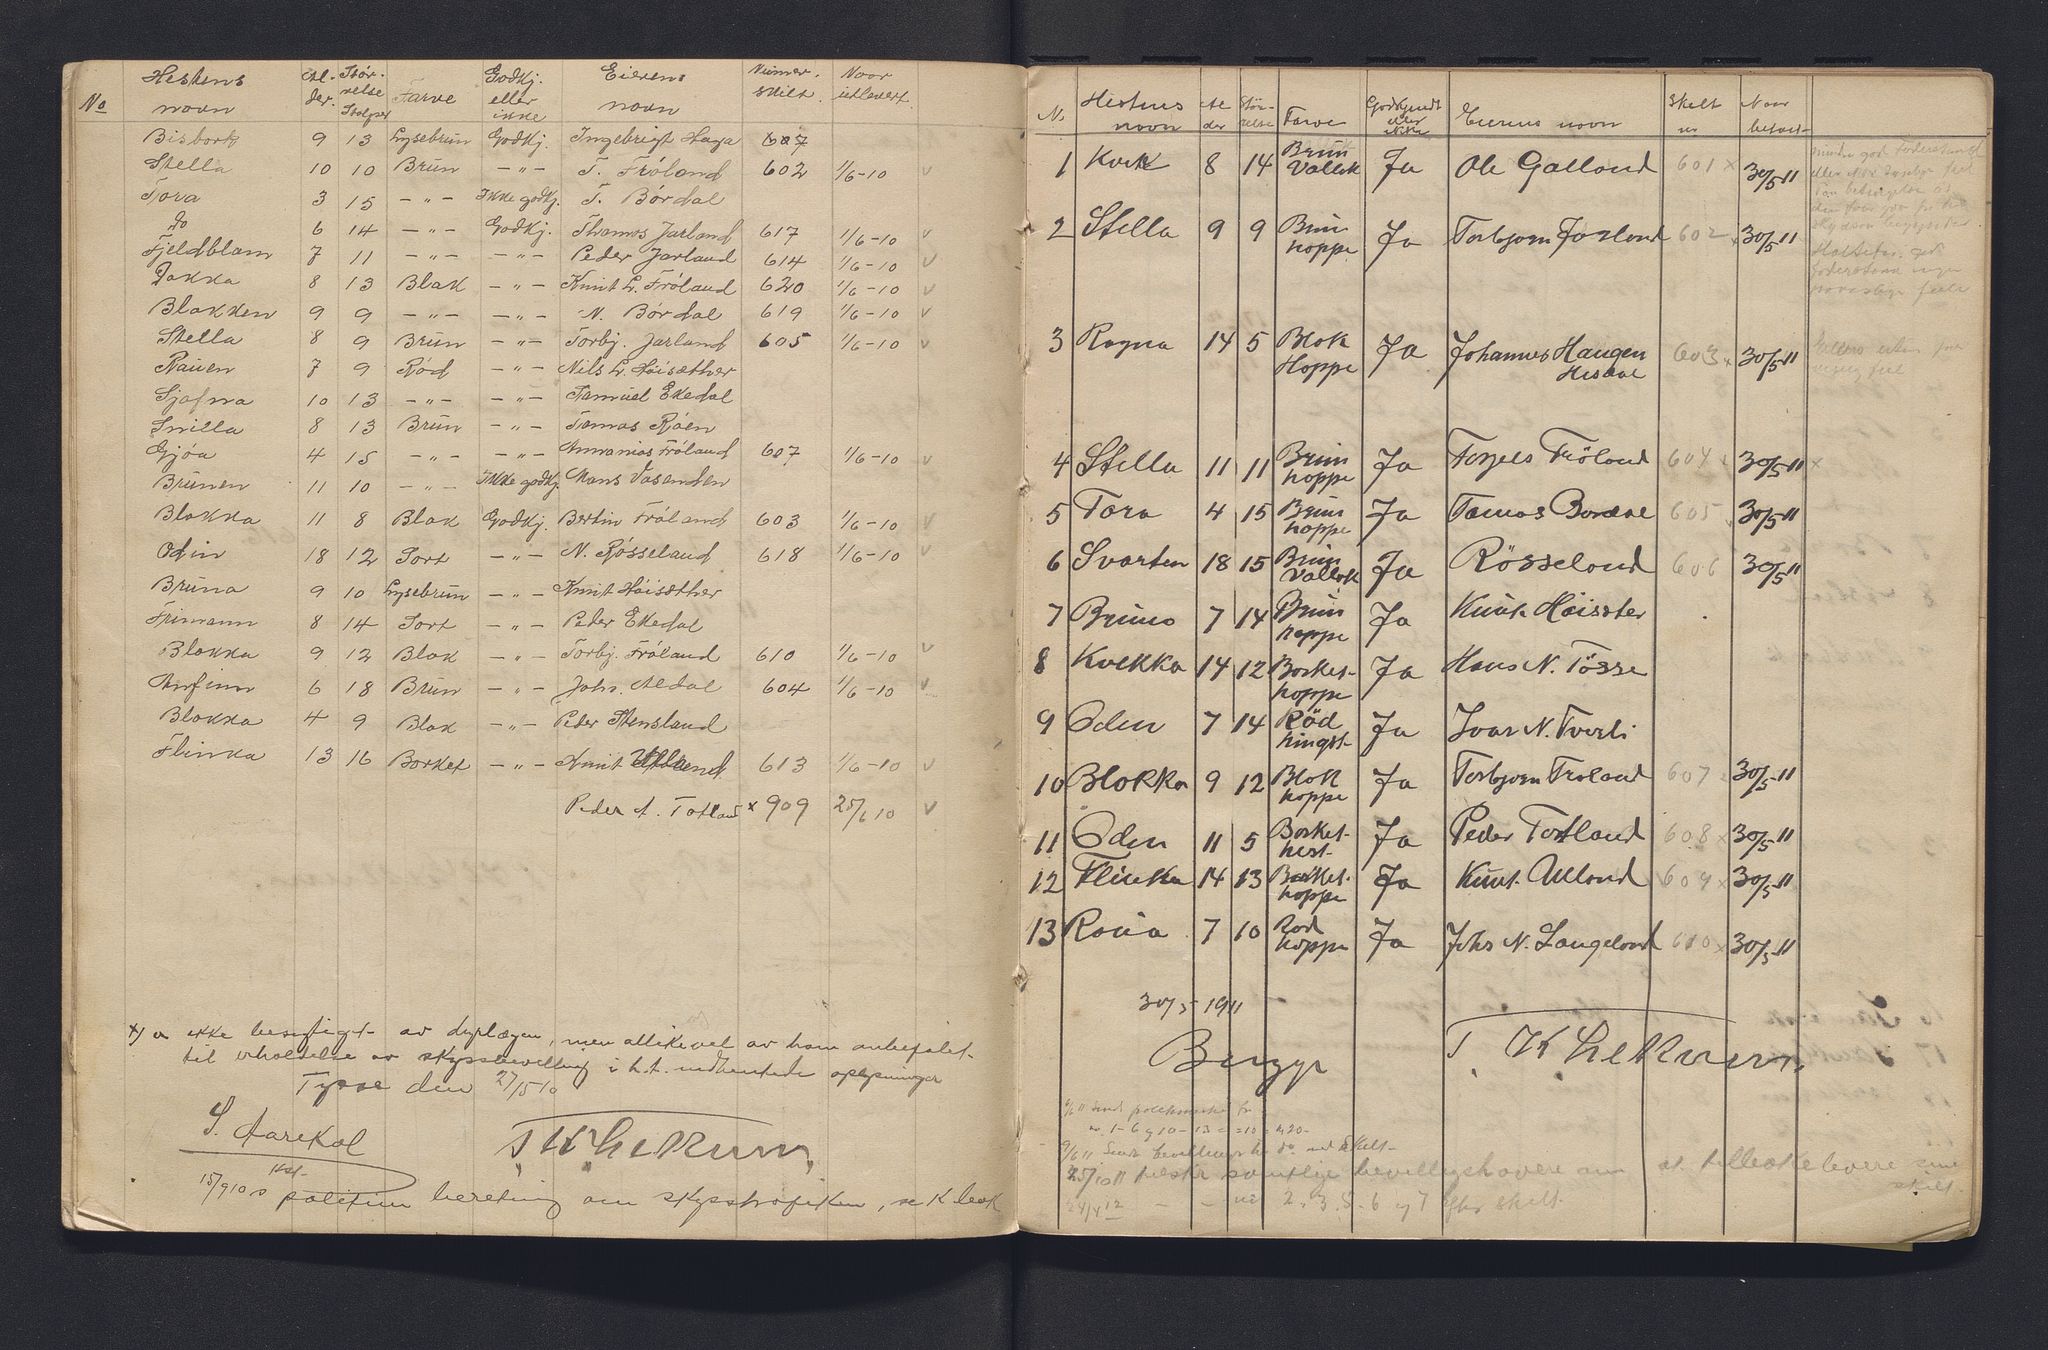 No Hestens navn Al-der. Stør-relse Stolper Farve Godkj. eller ikke Eierens navn Nummer skilt. Naar utlevert.
Bisbork 9 13 Lysebrun Godkj. Ingebrigt Haga 607
Stella 10 10 Brun -"- T. Frøland 602 1/6-10 v
Tora 3 15 -"- Ikke godkj. T. Børdal
Do 6 14 -"- Godkj. Thomas Jarland 617 1/6-10 v
Fjeldblom 7 11 -"- -"- Peder Jarland 614 1/6-10 v
Dokka 8 13 Blak -"- Knut L. Frøland 620 1/6-10 v
Blakken 9 9 -"- -"- N. Børdal 619 1/6-10 v
Stella 8 9 Brun -"- Torbj. Jarland 605 1/6-10 v
Rauen 7 9 Rød -"- Nils L. Høisæther
Sjofna 10 13 -"- -"- Samuel Ekedal
Snilla 8 13 Brun -"- Tomas Røen
Gjøa 4 15 -"- -"- Annanias Frøland 607 1/6-10 v
Brunen 11 10 -"- Ikke godkj. Mons Vasenden
Blokka 11 8 Blak Godkj. Bertin Frøland 603 1/6-10 v
Odin 18 12 Sort -"- N. Røsseland 618 1/6-10 v
Bruna 9 10 Lysebrun -"- Knut Høisæther
Frimann 8 14 Sort -"- Peder Ekedal
Blokka 9 12 Blak -"- Torbj. Frøland 610 1/6-10 v
Anfinn 6 18 Brun -"- Johs. Aldal 604 1/6-10 v
Blokka 4 9 Blak -"- Peder Stensland
Flinka 13 16 Borket -"- Knut Ulland 613 1/6-10 v
Peder A. Totland x 909 25/6 10 v
x) er ikke besigtiget av dyrlægen, men allikevel av ham anbefalet
til erholdelse av skydsbevilling i h.t. indhentede oplysninger
Tysse den 27/5 10
S. Aarekol
T K Lekum
15/9 10 politiets beretning om skysstrafiken, se K bok
N. Hestens navn Al der Stør-relse Farve Godkjendt eller ikke Eierens navn Skilt nr Naar betalt
1 Kvik 8 14 Brun Vallak Ja Ole Galland 601 x 30/5 11
2 Stella 9 9 Brun hoppe Ja Torbjorn Jarland 602 x 30/5 11
3 Ragna 14 5 Blak Hoppe Ja Johannes Haugen Hisdal 603 x 30/5 11
4 Stella 11 11 Brun hoppe Ja Torgils Frøland 604 x 30/5 11 x
5 Tora 4 15 Brun hoppe Ja Tomas Bordal 605 30/5 11
6 Svarten 18 15 Brun Vallak Ja Røsseland 606 30/5 11
7 Bruna 7 14 Brun hoppe Ja Knut Høisæter
8 Kvikka 14 12 Borket-hoppe Ja Hans N. Tøsse
9 Oden 7 14 Rød hingst Ja Ivar N. Tveili
10 Blokka 9 12 Blak hoppe Ja Torbjorn Froland 607 x 30/5 11
11 Oden 11 5 Borket-hest Ja Peder Totland 608 x 30/5 11
12 Flinka 14 13 Borket-hoppe Ja Knut Ulland 609 x 30/5 11
13 Raua 7 10 Rød hoppe Ja Johs N. Langeland 610 x 30/5 11
30/5 1911
T. K Lekum.
nr. 1-6 og 10-13 = 10
25/10 11 samtlige bevillingshavere om at tilbakelevere sine skilt.
24/4 12 - - nr 2. 3. 5. 6 og 7 efter skilt